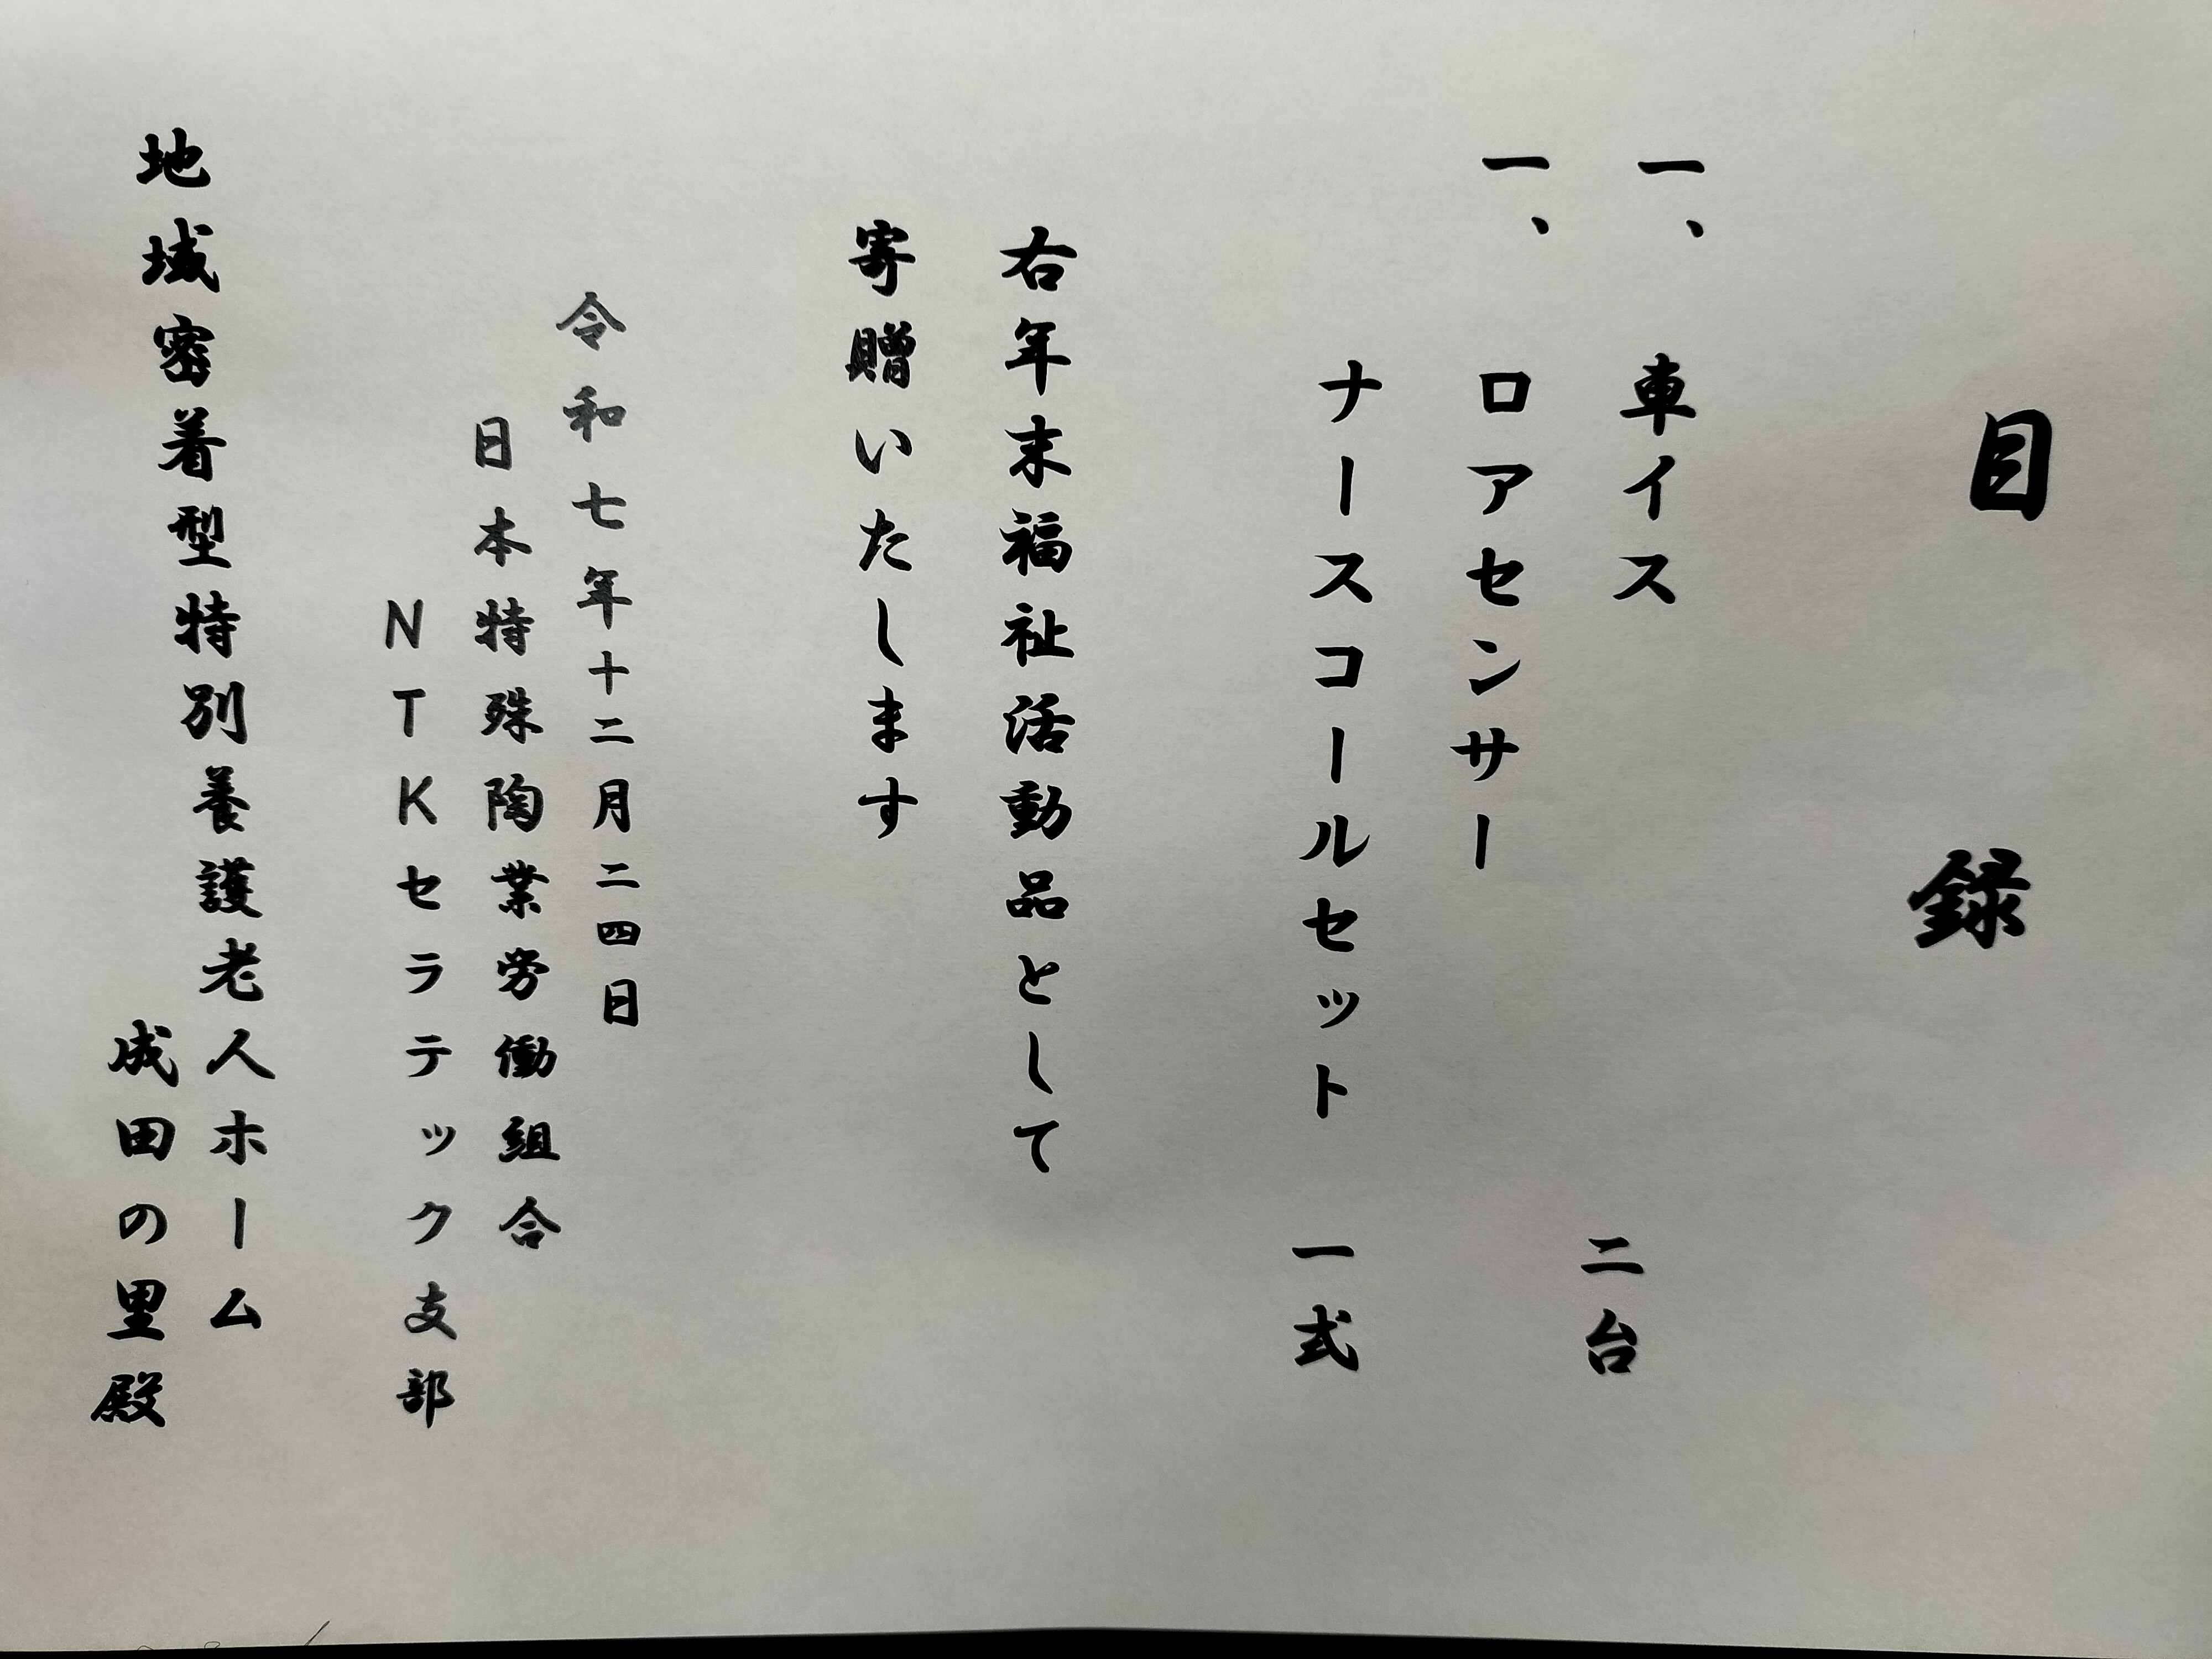 目録
一、車イス 二台
一、ロアセンサー
ナースコールセット 一式
右年末福祉活動品として
寄贈いたします
令和七年十二月二四日
日本特殊陶業労働組合
NTKセラテック支部
地域密着型特別養護老人ホーム
成田の里殿